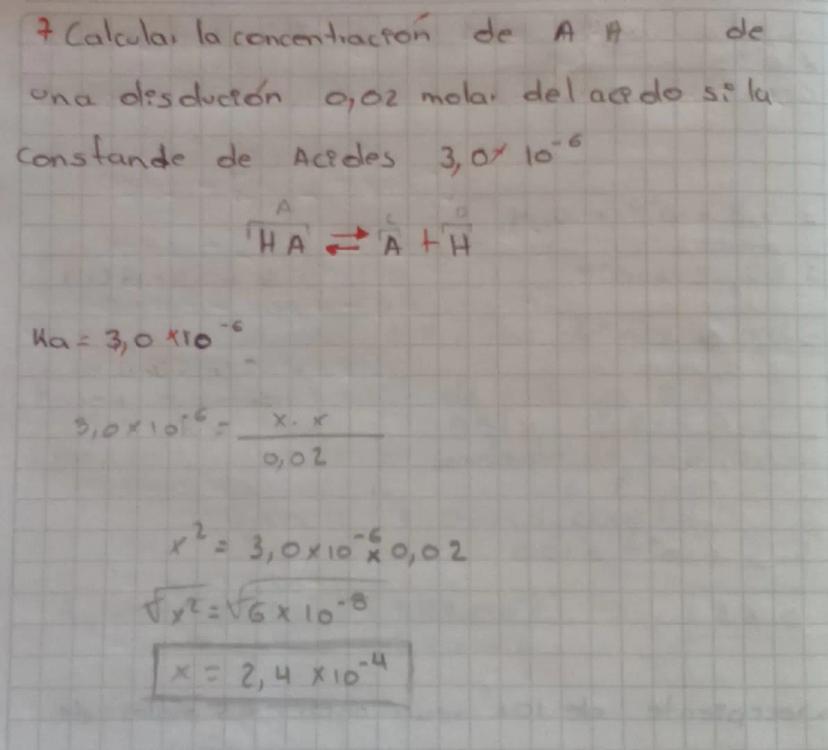 7 Calcular la concentración de A A de
una disolución 0,02 molar del acedo si la
constande de Acedes 3,0x 10⁻⁶
A C D
HA ⇌ A + H
Ka = 3,0 x10⁻⁶
3,0 x 10⁻⁶ = x. x
0,02
x² = 3,0x10⁻⁶ x 0,02
√x² = √6 x 10⁻⁸
x = 2,4 x10⁻⁴